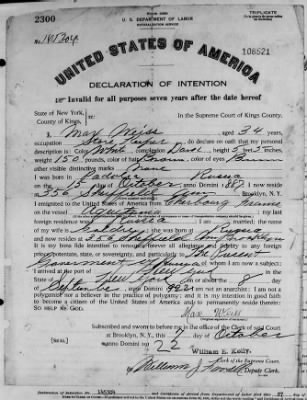 2300
U. S. DEPARTMENT OF LABOR
NATURALIZATION SERVICE
TRIPLICATE
No.
UNITED STATES OF AMERICA
108521
DECLARATION OF INTENTION
Invalid for all purposes seven years after the date hereof
State of New York, In the Supreme Court of Kings County.
County of Kings,
I, Max Weiss aged 34 years,
occupation Store Keeper, do declare on oath that my personal
description is: Color White, complexion Dark, height 5 feet 5 inches,
weight 150 pounds, color of hair Brown, color of eyes Brown
other visible distinctive marks None
I was born in Russia
on the 15 day of October, anno Domini 1887; I now reside
at 256 Sheffield Ave Brooklyn, N.Y.
I emigrated to the United States of America from Cherbourg France
on the vessel Aquitania; my last
foreign residence was; I am married; the name
of my wife is; she was born at Russia
and now resides at 256 Sheffield Ave Brooklyn
It is my bona fide intention to renounce forever all allegiance and fidelity to any foreign
prince, potentate, state, or sovereignty, and particularly to The Present
Government of Russia, of whom I am now a subject;
I arrived at the port of New York, in the
State of New York, on or about the 8 day
of September, anno Domini 1922; I am not an anarchist; I am not a
polygamist nor a believer in the practice of polygamy; and it is my intention in good faith
to become a citizen of the United States of America and to permanently reside therein:
SO HELP ME GOD.
Max Weiss
Subscribed and sworn to before me in the office of the Clerk of said Court
at Brooklyn, N. Y., this day of October
[SEAL] anno Domini 1922
William E. Kelly,
Clerk of the Supreme Court.
By Deputy Clerk.